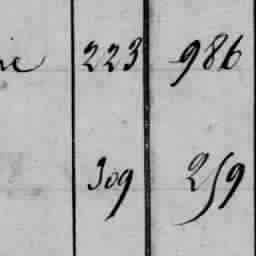 223 986
309 259